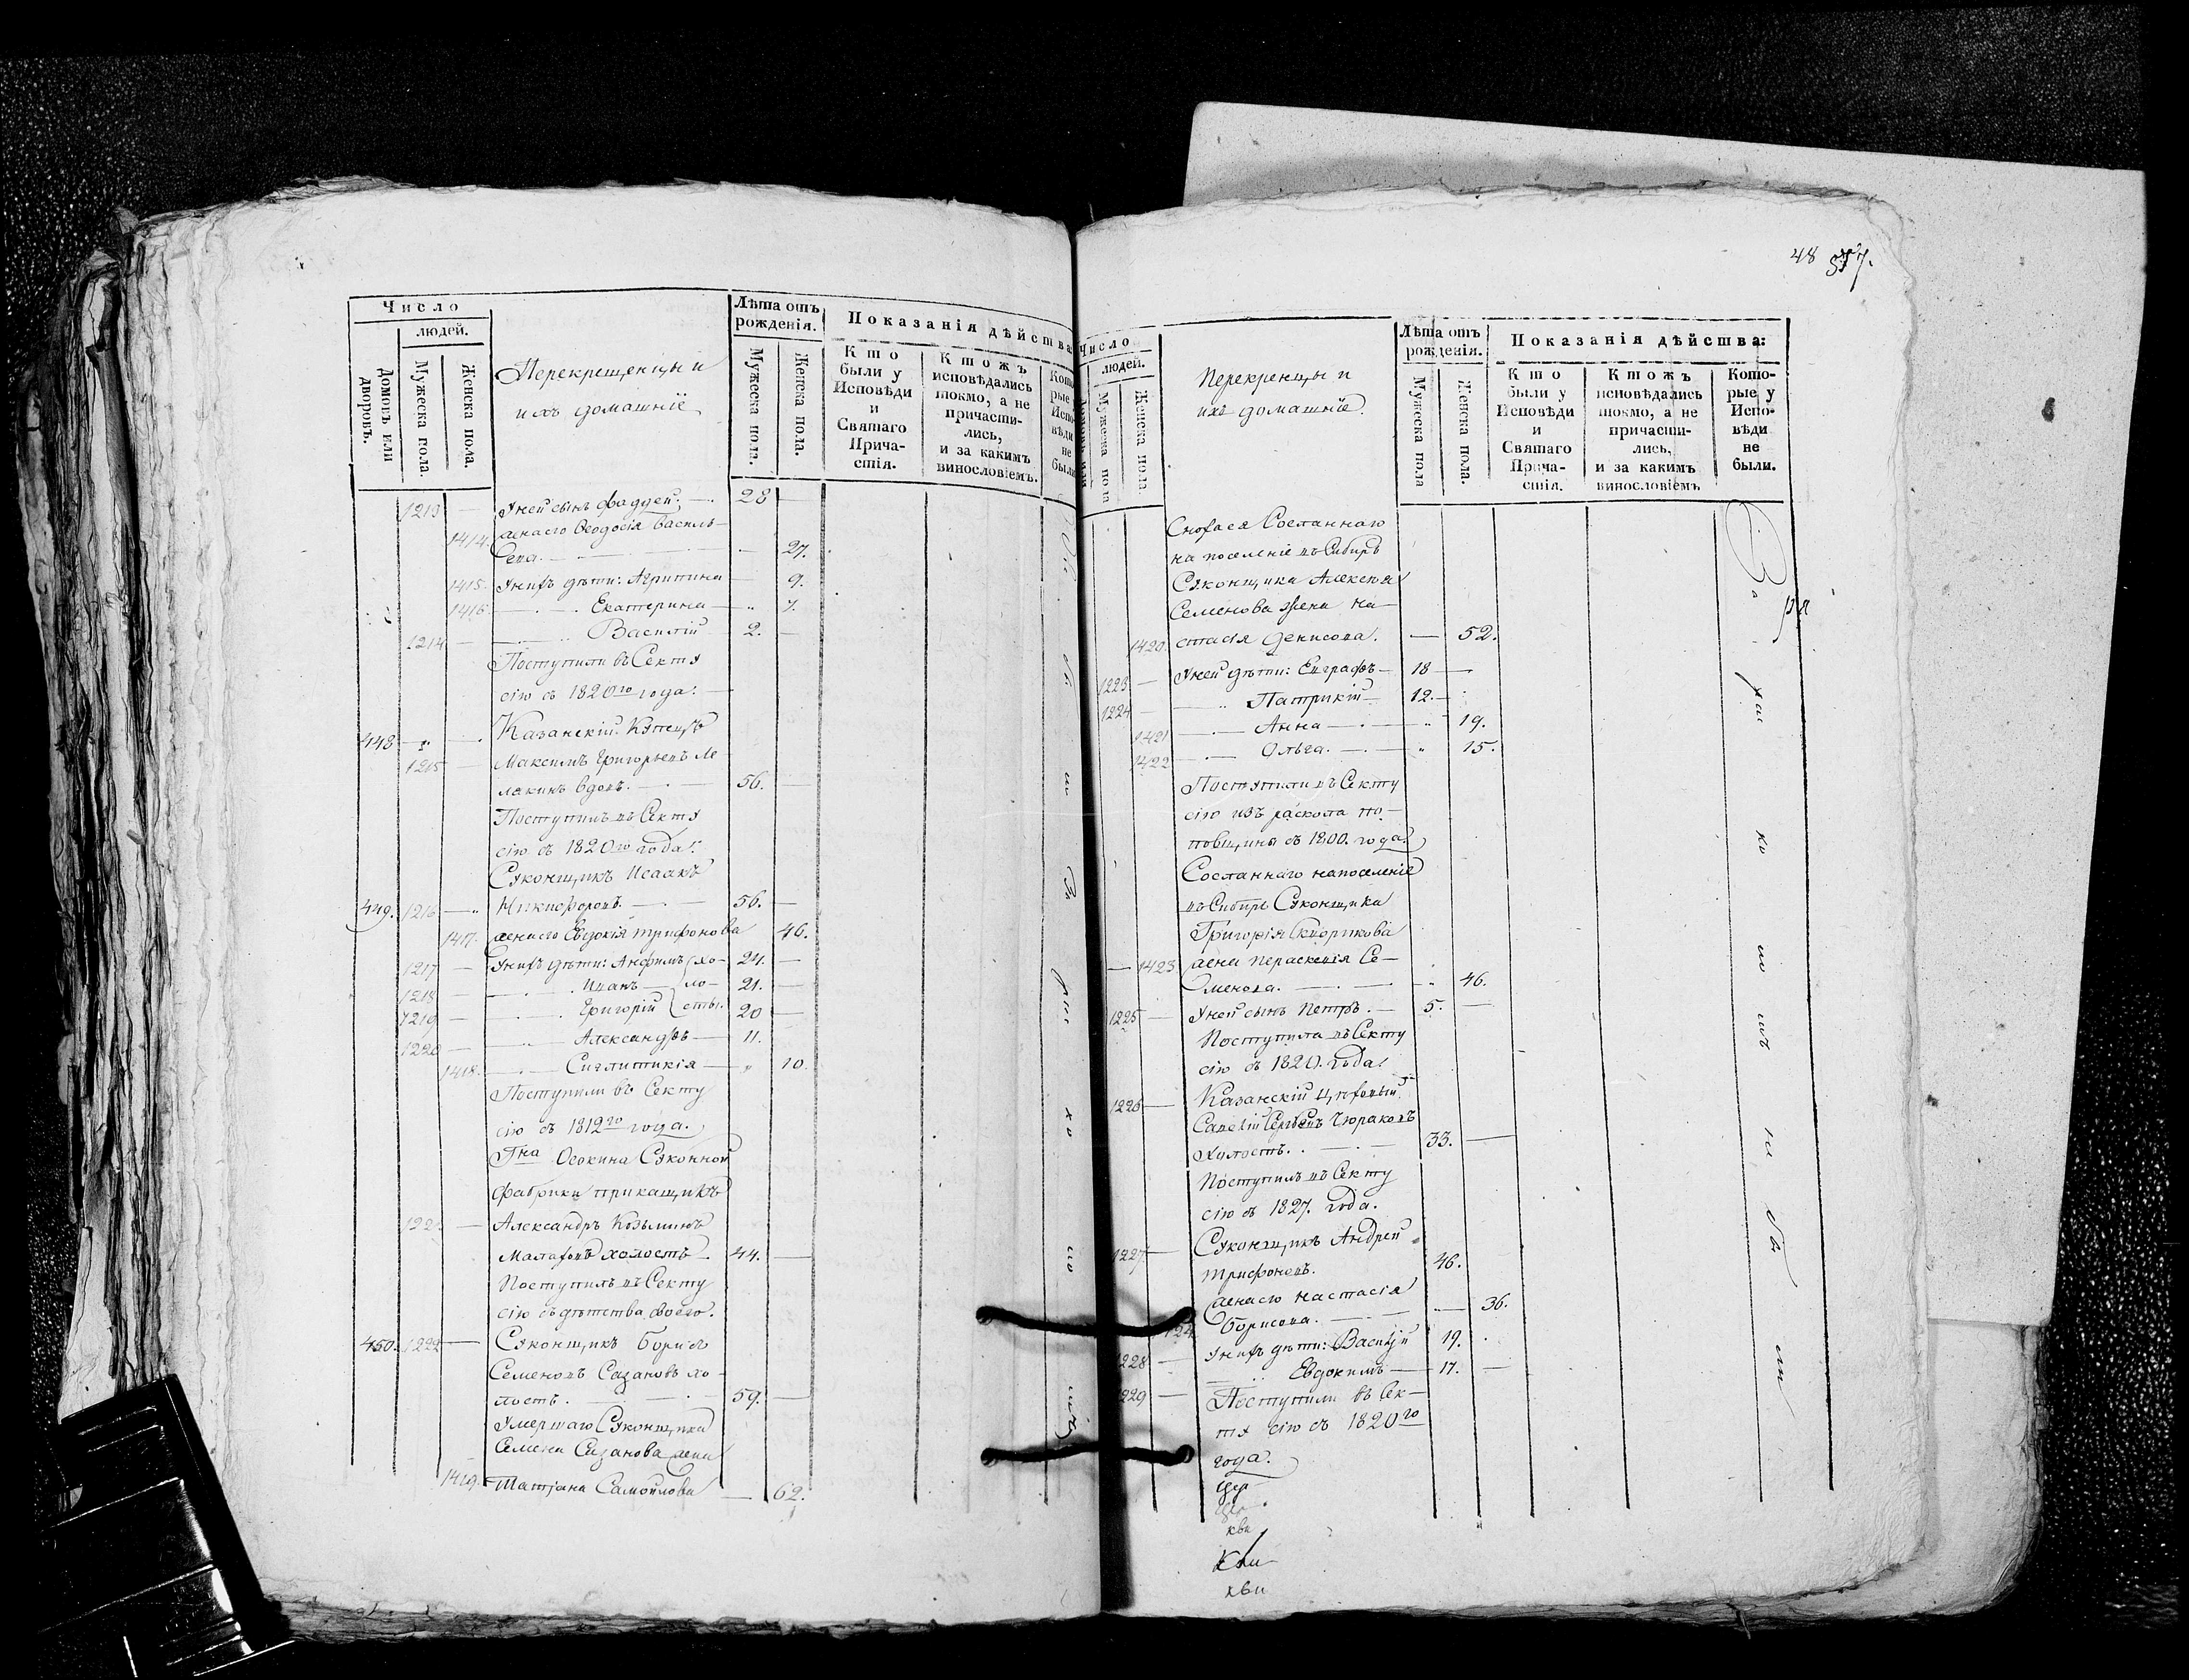 Число
людей.
Домовъ или дворовъ.
Мужеска пола.
Женска пола.
Перекрещенцы и
ихъ домашніе
Лѣта отъ
рожденія.
Мужеска пола.
Женска пола.
Показанія дѣйства:
Кто
были у
Исповѣди
и
Святаго
Прича-
стія.
Ктожъ
исповѣдались
токмо, а не
причасти-
лись,
и за какимъ
винословіемъ.
Кото-
рые
Испо-
вѣди
не
были
1213 — У ней сынъ Фаддей. — 28 —
1414. жена его Ѳеодосія Василь-
ева. — 27.
1415. У нихъ дѣти: Агрипина — 9.
1416 — Екатерина — „ 7.
1214 — Василій 2. —
Поступили въ Секту
сію съ 1820го года.
448 Казанскій Купецъ
1215 — Максимъ Григорьевъ Ме
лакинъ вдовъ. — 56. —
Поступилъ въ Секту
сію съ 1820го года.
Суконщикъ Исаакъ
449. 1216 — Никифоровъ. — 56. —
1417. жена его Евдокія Трифонова 46.
1217 — У нихъ дѣти: Анфимъ хо- 24. —
1218 — Иванъ — ло- 21. —
1219 — Григорій сты. 20 —
1220 — Александръ — 11.
1418. — Сиглитикія — „ 10.
Поступили въ Секту
сію съ 1812го года.
Гна Осокина Суконной
фабрики прикащикъ
122 — Александръ Козьминъ
Малаховъ холостъ. 44. —
Поступилъ въ Секту
сію съ дѣтства своего.
450. 1222 — Суконщикъ Борисъ
Семеновъ Сазановъ хо-
лостъ. — 59. —
Умершаго Суконщика
Семена Сазанова жена
1419. Татіана Самойлова — 62.
48 577.
Число
людей.
Мужеска пола
Женска пола
Перекренцы и
ихъ домашніе.
Лѣта отъ
рожденія.
Мужеска пола
Женска пола.
Показанія дѣйства:
Кто
были у
Исповѣди
и
Святаго
Прича-
стія.
Ктожъ
исповѣдались
токмо, а не
причасти-
лись,
и за какимъ
винословіемъ
Кото-
рые у
Испо-
вѣди
не
были.
Сноха ея Сосланнаго
на поселеніе въ Сибирь
Суконщика Алексея
Семенова жена На-
1420. стасія Денисова. — 52.
1223 — У ней дѣти: Евграфъ — 18 —
1224 — Патрикій — 12. —
1421 — Анна — „ 19.
1422 — Ольга. — „ 15.
Поступили въ Секту
сію изъ раскола по-
повщины съ 1800. года.
Сосланнаго на поселеніе
въ Сибирь Суконщика
Григорія Скворикова
— 1423 жена Пераскевія Се-
менова. — „ 46.
1225 — У ней сынъ Петръ. — 5. —
Поступила въ Секту
сію съ 1820. года.
1226 — Казанскій Цеховый
Савелій Сергѣевъ Чюраковъ
Холостъ. — 33. —
Поступилъ въ Секту
сію съ 1827. года.
1227 — Суконщикъ Андрей
Трифоновъ. 46.
жена его Настасія
Борисова. — 36.
1228 — У нихъ дѣти: Василій 19.
1229 — Евдокимъ — 17. —
Поступили въ Сек-
ту сію съ 1820го
года.